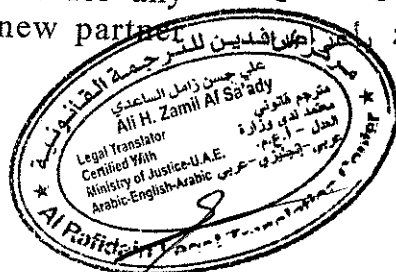 any
new partner
مركز الرافدين للترجمة القانونية
علي حسن زامل الساعدي
Ali H. Zamil Al Sa'ady
Legal Translator
Certified With
Ministry of Justice-U.A.E.
Arabic-English-Arabic
مترجم قانوني
معتمد لدى وزارة
العدل - أ.ع.م.
عربي-إنجليزي-عربي
Al Rafidain Legal Translation Center